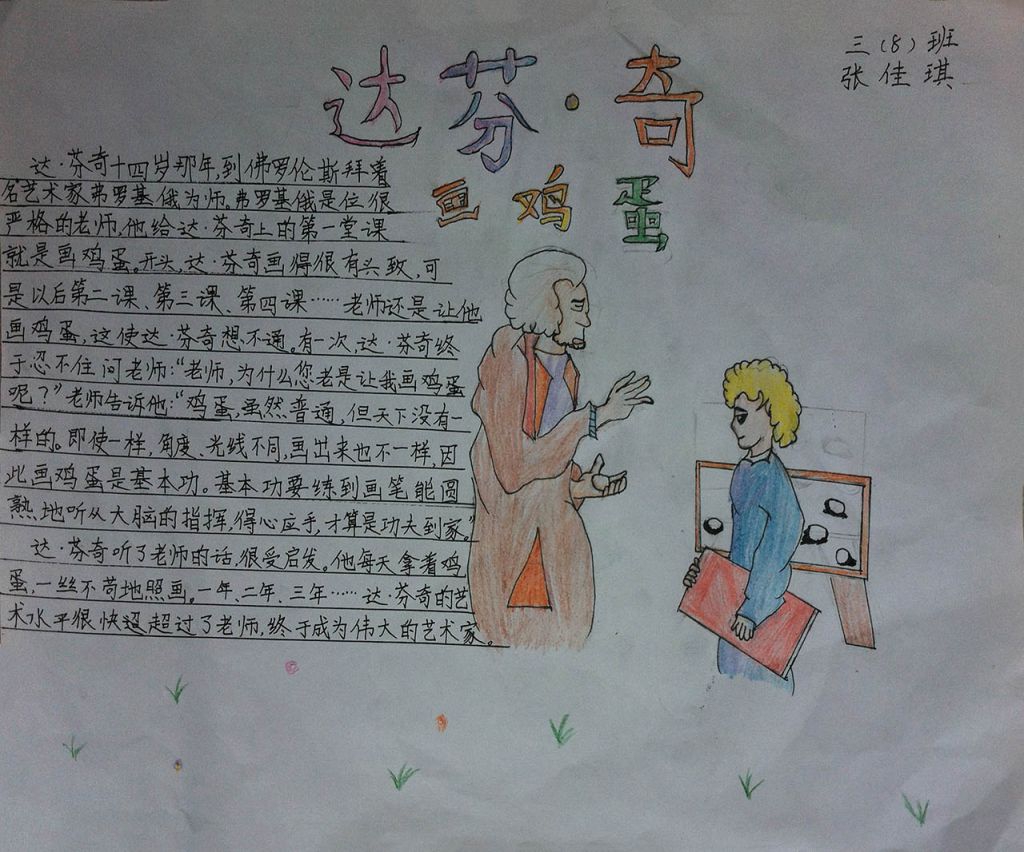 三(8)班
张佳琪
达芬·奇
画鸡蛋
达·芬奇十四岁那年,到佛罗伦斯拜着
名艺术家弗罗基俄为师。弗罗基俄是位很
严格的老师,他给达·芬奇上的第一堂课
就是画鸡蛋。开头,达·芬奇画得很有头致,可
是以后第二课、第三课、第四课……老师还是让他
画鸡蛋,这使达·芬奇想不通。有一次,达·芬奇终
于忍不住问老师:“老师,为什么您老是让我画鸡蛋
呢?”老师告诉他:“鸡蛋,虽然普通,但天下没有一
样的。即使一样,角度、光线不同,画出来也不一样,因
此画鸡蛋是基本功。基本功要练到画笔能圆
熟地听从大脑的指挥,得心应手,才算是功夫到家。”
达·芬奇听了老师的话,很受启发。他每天拿着鸡
蛋,一丝不苟地照画。一年、二年、三年……达·芬奇的艺
术水平很快超超过了老师,终于成为伟大的艺术家。